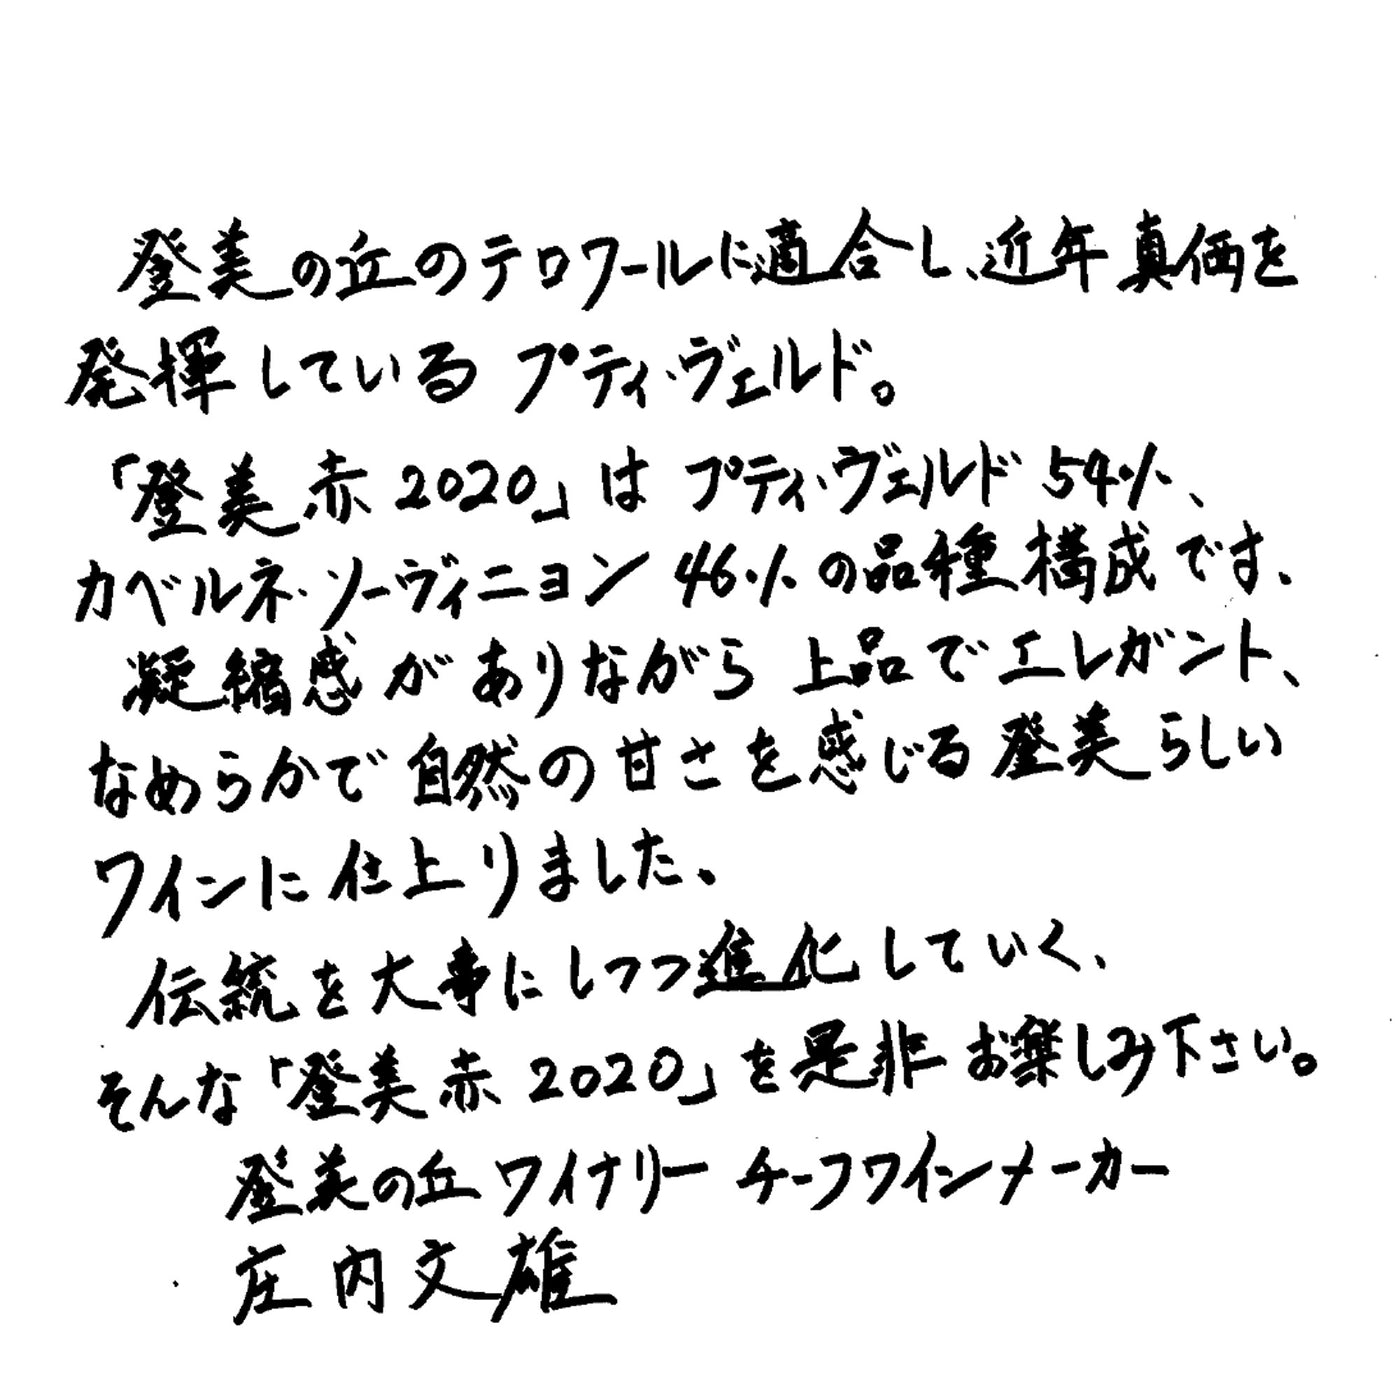 登美の丘のテロワールに適合し、近年真価を
発揮している プティ・ヴェルド。
「登美 赤 2020」は プティ・ヴェルド 54%、
カベルネ・ソーヴィニヨン 46%の品種構成です、
凝縮感がありながら 上品でエレガント、
なめらかで自然の甘さを感じる登美らしい
ワインに仕上りました、
伝統を大事にしつつ進化していく、
そんな「登美 赤 2020」を是非お楽しみ下さい。
登美の丘ワイナリー チーフワインメーカー
庄内文雄